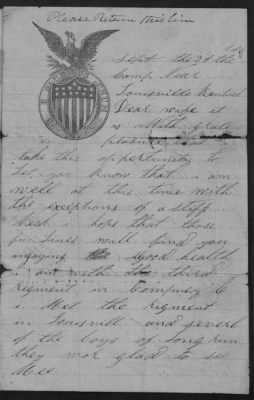 Please Return this
E PLURIBUS UNUM
Sept the 21 the
Camp Near
Louisville Kentuck
Dear wife it
is With Grate
pleasure that i
take this oppertunity to
let you know that i am
well at this time with
the exceptions of a stiff
Neck i hope that those
few lines will find you
injoying good health
i am with the third
Rigment in Compney C
i Met the Rigment
in Louisvill and severl
of the boys of Long Run
they wor glad to see
Mee